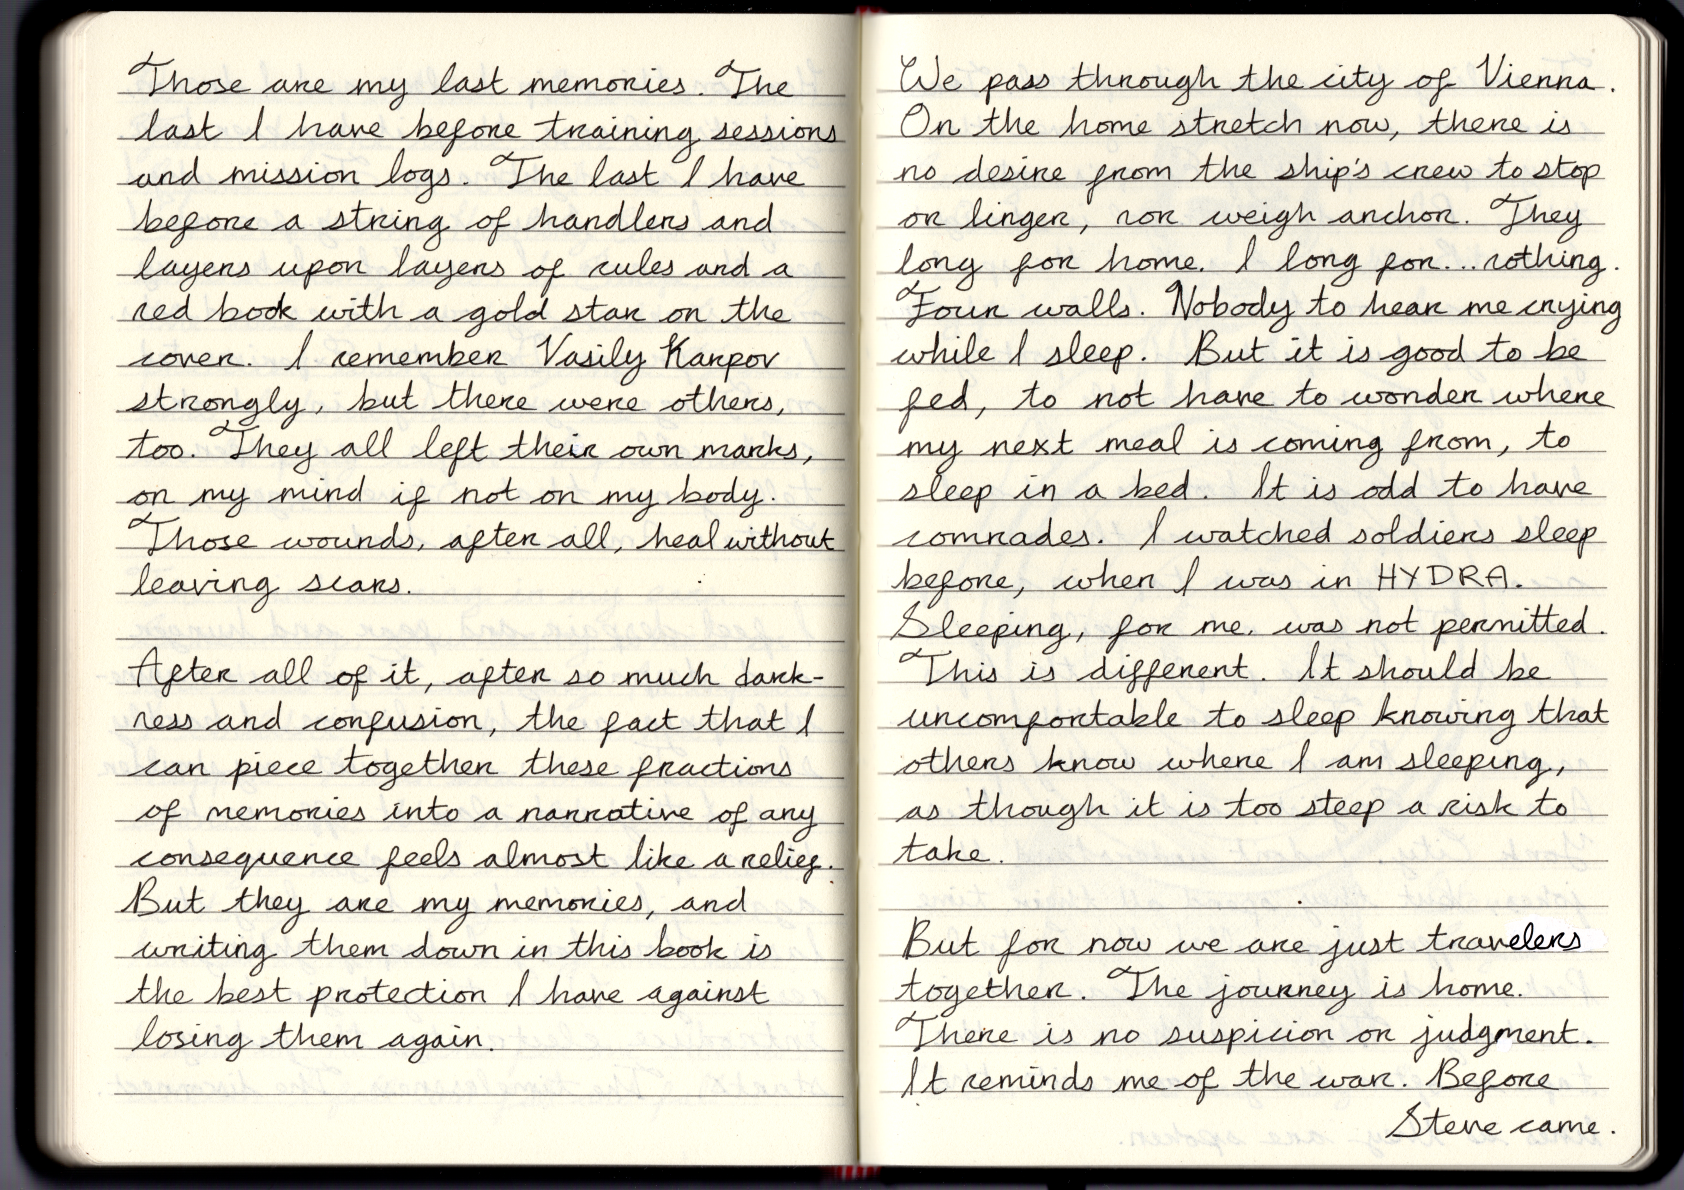 Those are my last memories. The
last I have before training sessions
and mission logs. The last I have
before a string of handlers and
layers upon layers of rules and a
red book with a gold star on the
cover. I remember Vasily Karpov
strongly, but there were others,
too. They all left their own marks,
on my mind if not on my body.
Those wounds, after all, heal without
leaving scars.
After all of it, after so much dark-
ness and confusion, the fact that I
can piece together these fractions
of memories into a narrative of any
consequence feels almost like a relief.
But they are my memories, and
writing them down in this book is
the best protection I have against
losing them again.
We pass through the city of Vienna.
On the home stretch now, there is
no desire from the ship's crew to stop
or linger, nor weigh anchor. They
long for home. I long for...nothing.
Four walls. Nobody to hear me crying
while I sleep. But it is good to be
fed, to not have to wonder where
my next meal is coming from, to
sleep in a bed. It is odd to have
comrades. I watched soldiers sleep
before, when I was in HYDRA.
Sleeping, for me, was not permitted.
This is different. It should be
uncomfortable to sleep knowing that
others know where I am sleeping,
as though it is too steep a risk to
take.
But for now we are just travelers
together. The journey is home.
There is no suspicion or judgment.
It reminds me of the war. Before
Steve came.